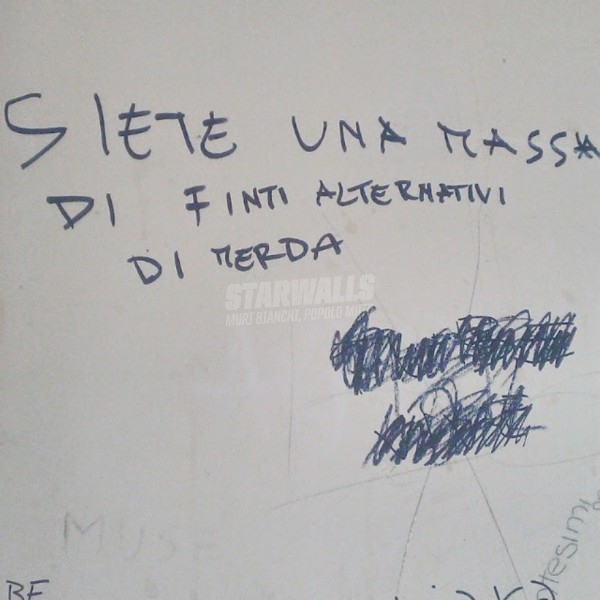 SIETE UNA MASSA
DI FINTI ALTERNATIVI
DI MERDA
STARWALLS
MURI BIANCHI, POPOLO MUTO
MUSE
BE